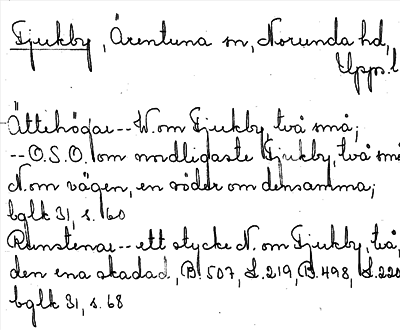 Tjukby, Ärentuna sn, Norunda hd,
Upps. l
Ättehögar -- W. om Tjukby, två små;
-- O.S.O. om nordligaste Tjukby, två små
N. om vägen, en söder om densamma;
bglk 31, s. 60
Runstenar -- ett stycke N. om Tjukby, två,
den ena skadad, B. 507, L. 219, B. 498, L. 220
bglk 31, s. 68